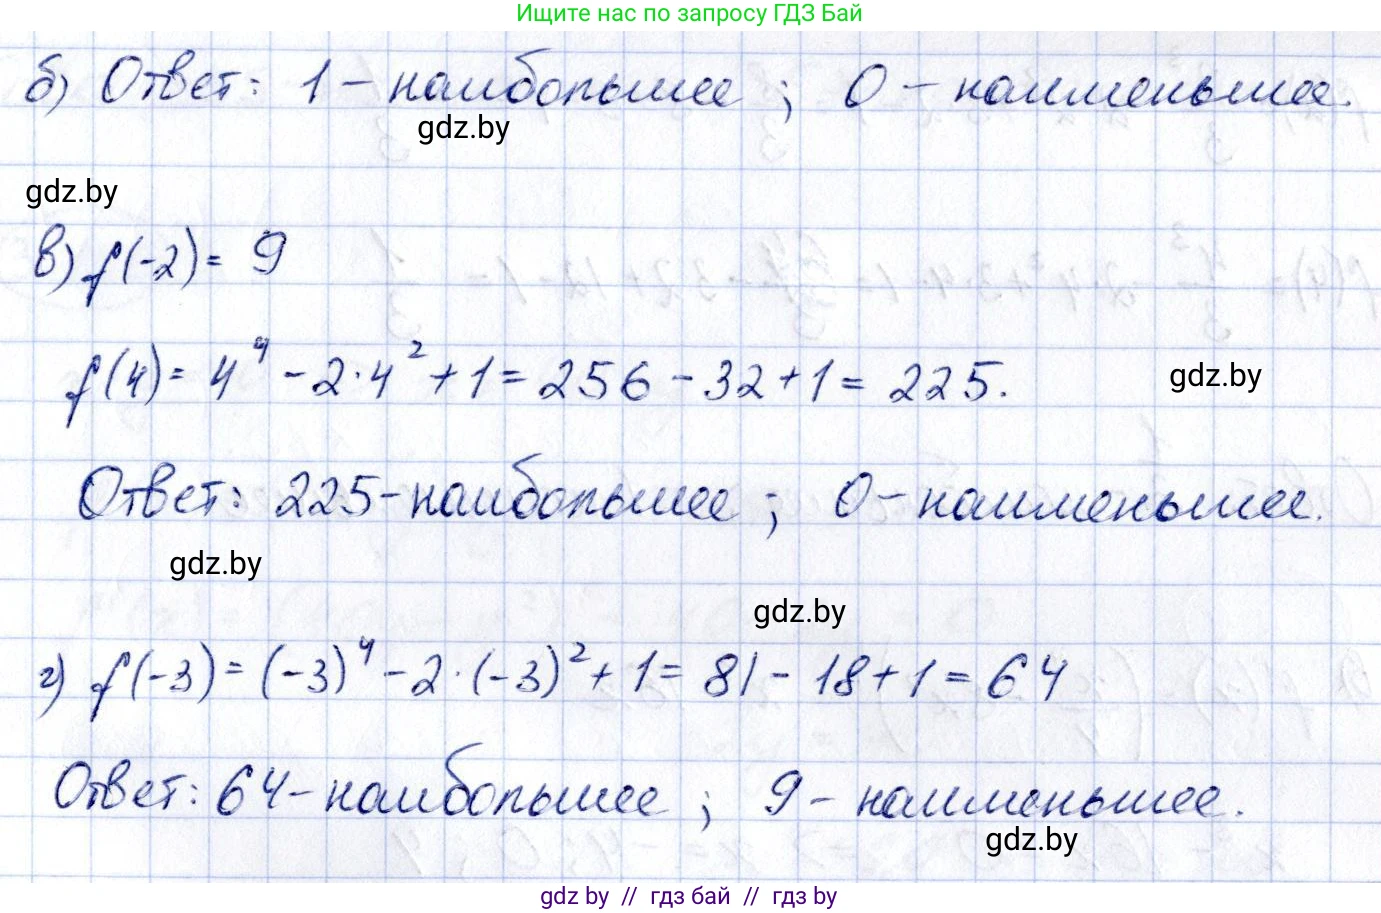 Ищите нас по запросу ГДЗ Бай
б) Ответ: 1 – наибольшее ; 0 – наименьшее.
gdz.by
gdz.by
в) f(-2) = 9
f(4) = 4⁴ - 2·4² + 1 = 256 - 32 + 1 = 225.
gdz.by
Ответ: 225 - наибольшее ; 0 - наименьшее.
gdz.by
gdz.by
г) f(-3) = (-3)⁴ - 2·(-3)² + 1 = 81 - 18 + 1 = 64
Ответ: 64 - наибольшее ; 9 - наименьшее.
gdz.by
gdz by // гдз бай // гдз by